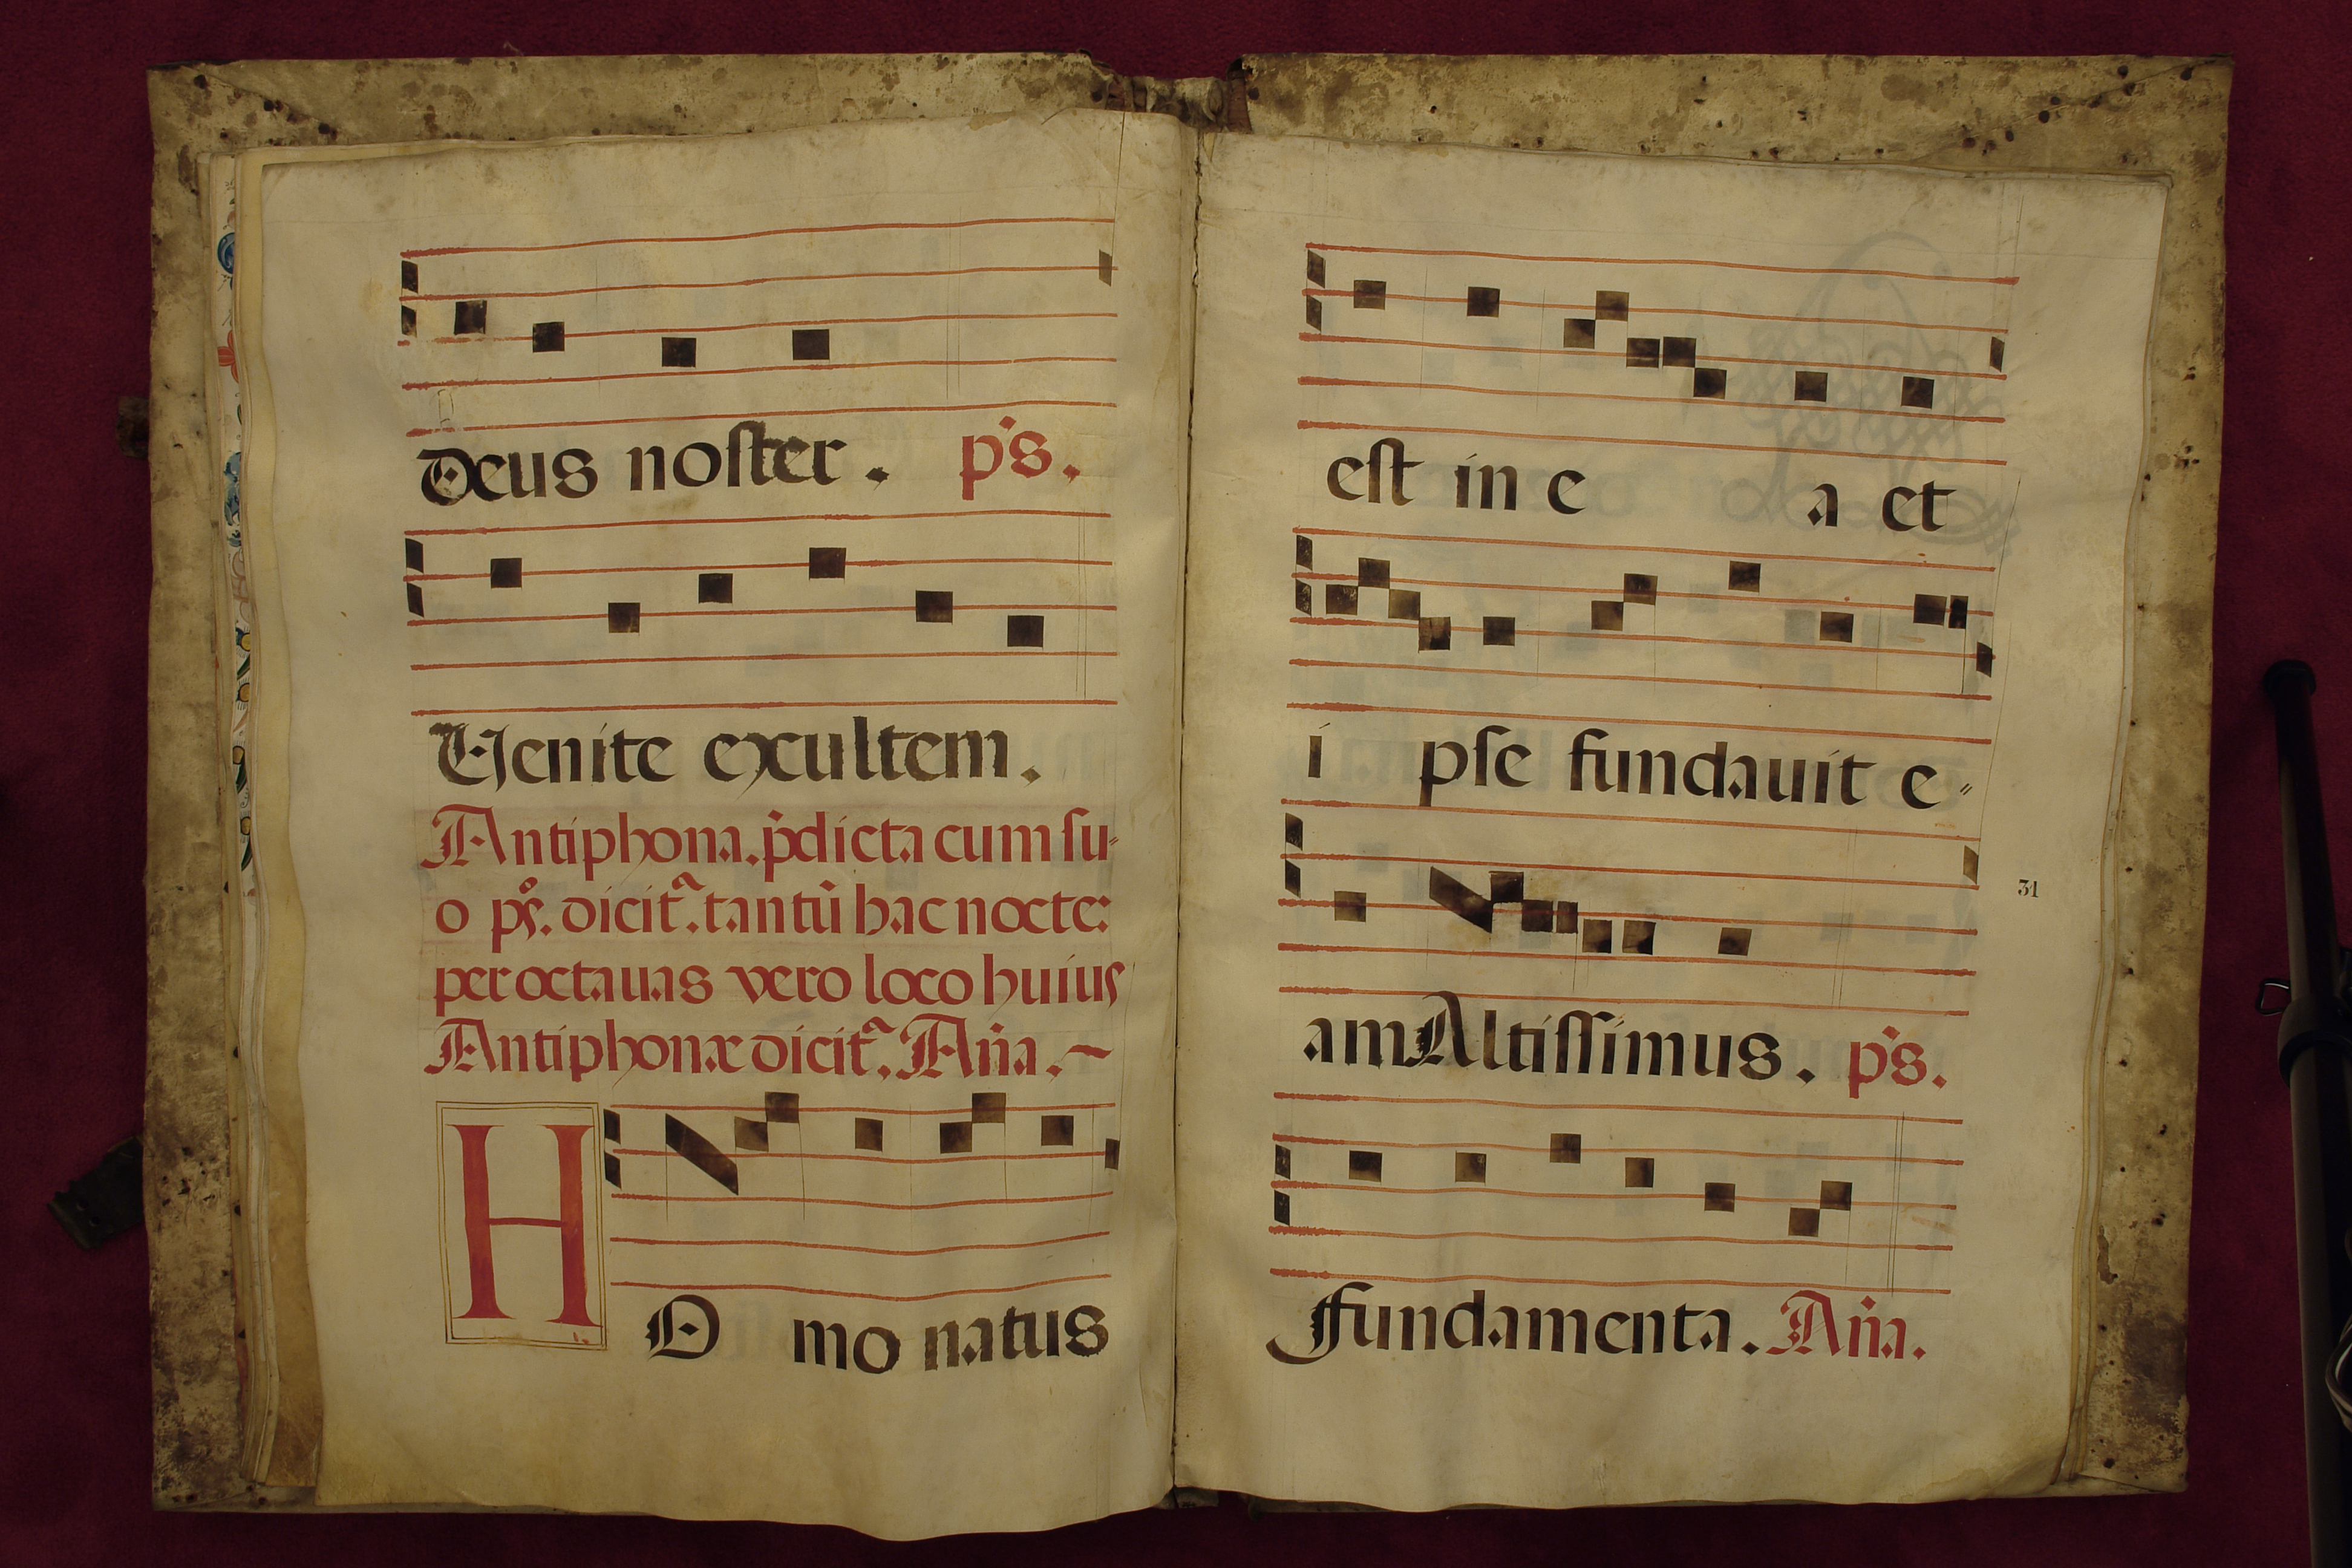 Deus noster. p̄s.
Venite exultem.
Antiphona. p̄dicta cum su⸗
o ps̊. dicit᷉. tantū hac nocte:
per octauas vero loco huius
Antiphonæ dicit᷉. Añа.
HO mo natus
est in e a et
i pse fundauit e⸗
31
am Altissimus. p̄s.
Fundamenta. Añа.